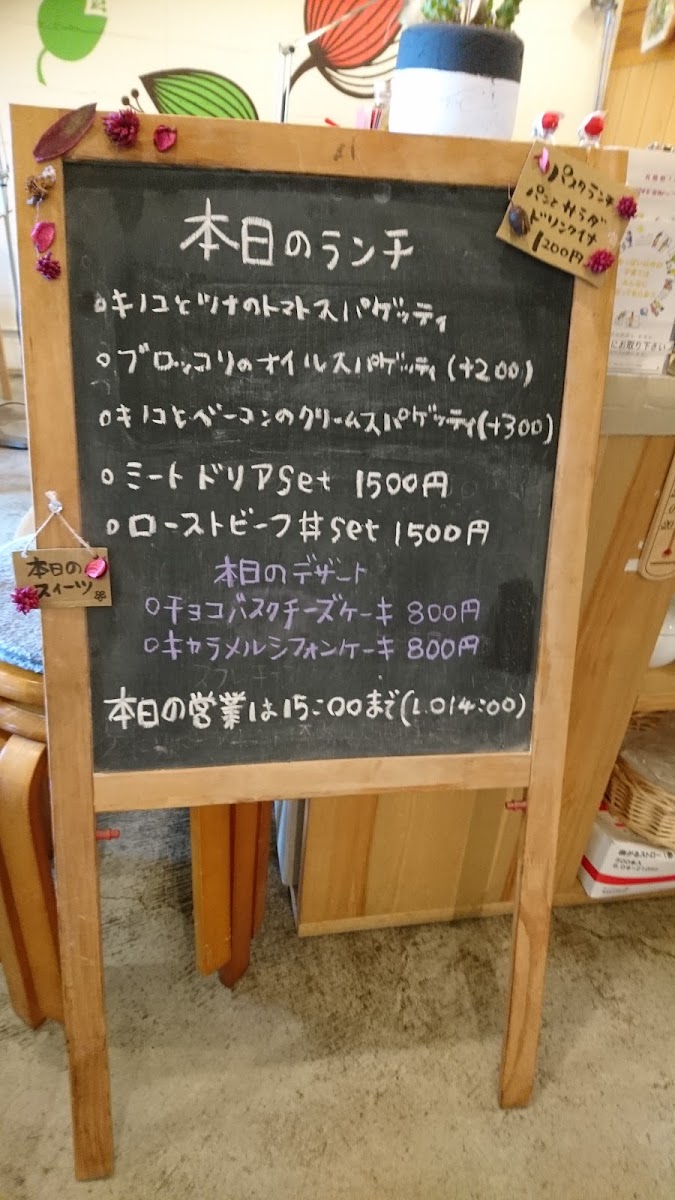 本日のランチ
○キノコとツナのトマトスパゲッティ
○ブロッコリのオイルスパゲッティ(+200)
○キノコとベーコンのクリームスパゲッティ(+300)
○ミートドリアset 1500円
○ローストビーフ丼set 1500円
本日のデザート
○チョコバスクチーズケーキ 800円
○キャラメルシフォンケーキ 800円
本日の営業は15:00まで(L.O14:00)
パスタランチ
パンとサラダ
ドリンク付
1200円
本日の
スイーツ
にお取り下さい